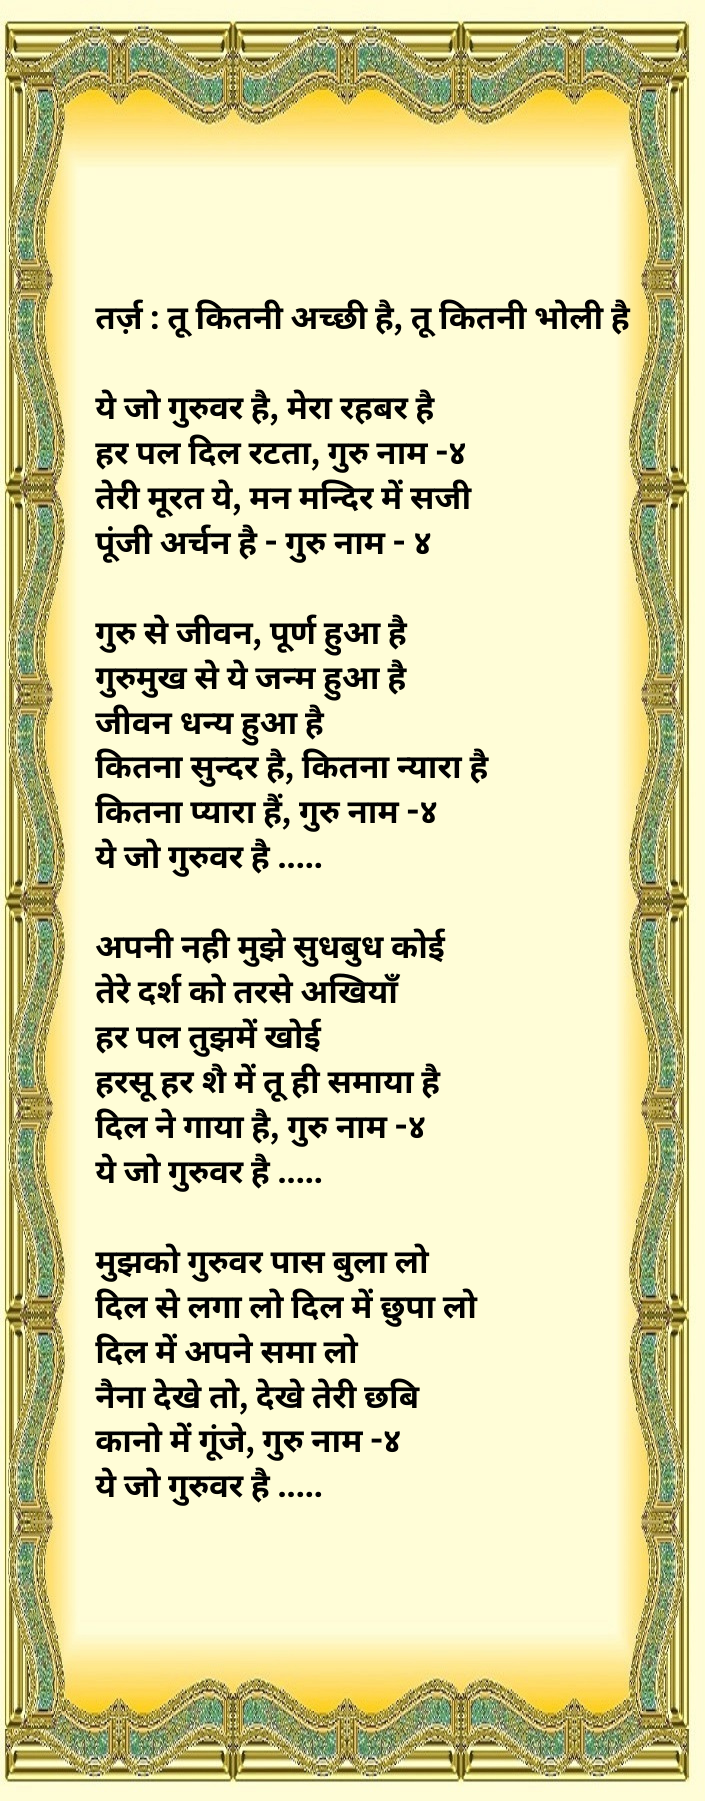 तर्ज़ : तू कितनी अच्छी है, तू कितनी भोली है
ये जो गुरुवर है, मेरा रहबर है
हर पल दिल रटता, गुरु नाम -४
तेरी मूरत ये, मन मन्दिर में सजी
पूंजी अर्चन है - गुरु नाम - ४
गुरु से जीवन, पूर्ण हुआ है
गुरुमुख से ये जन्म हुआ है
जीवन धन्य हुआ है
कितना सुन्दर है, कितना न्यारा है
कितना प्यारा हैं, गुरु नाम -४
ये जो गुरुवर है .....
अपनी नही मुझे सुधबुध कोई
तेरे दर्श को तरसे अखियाँ
हर पल तुझमें खोई
हरसू हर शै में तू ही समाया है
दिल ने गाया है, गुरु नाम -४
ये जो गुरुवर है .....
मुझको गुरुवर पास बुला लो
दिल से लगा लो दिल में छुपा लो
दिल में अपने समा लो
नैना देखे तो, देखे तेरी छबि
कानो में गूंजे, गुरु नाम -४
ये जो गुरुवर है .....